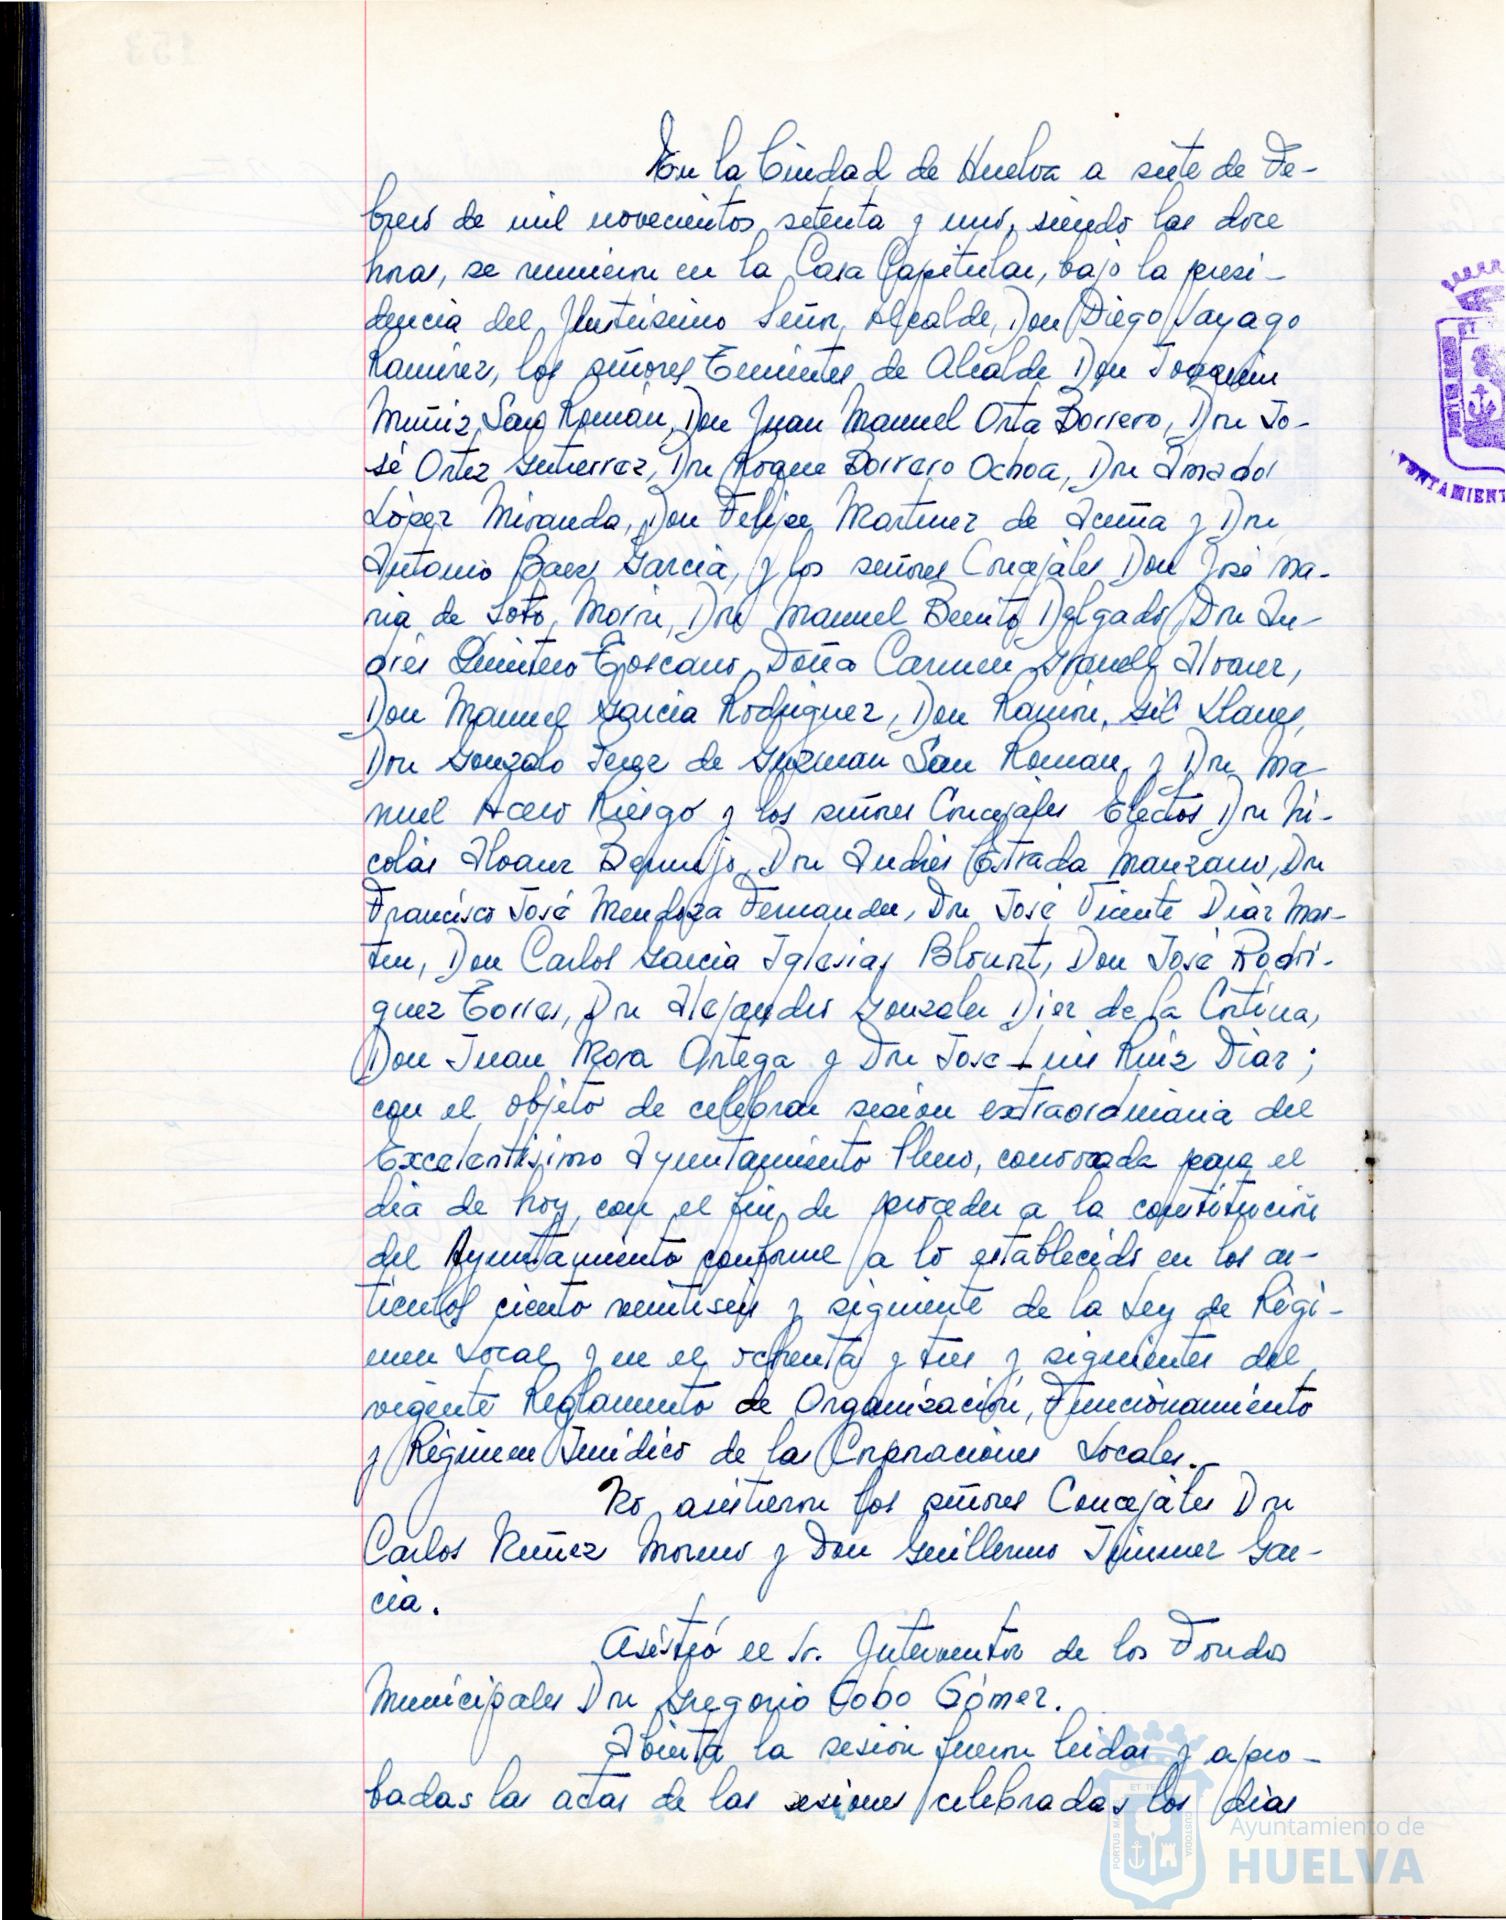 En la Ciudad de Huelva a siete de Fe-
brero de mil novecientos setenta y uno, siendo las doce
horas, se reunieron en la Casa Capitular, bajo la presi-
dencia del Ilustrísimo Señor Alcalde, Don Diego Sayago
Ramírez, los señores Tenientes de Alcalde Don Joaquin
Muñiz San Román, Don Juan Manuel Orta Borrero, Don Jo-
sé Ortez Gutierrez, Don Roque Borrero Ochoa, Don Amador
López Miranda, Don Felipe Martinez de Acuña y Don
Antonio Baez Garcia, y los señores Concejales Don José Ma-
ria de Soto Morón, Don Manuel Benito Delgado, Don An-
drés Quintero Toscano, Doña Carmen Granell Alvarez,
Don Manuel Garcia Rodriguez, Don Ramón Gil Llanes,
Don Gonzalo Jerez de Guzman San Roman, y Don Ma-
nuel Acero Riesgo y los señores Concejales Electos Don Ni-
colás Alvarez Bermejo, Don Andrés Estrada Manzano, Don
Francisco José Mendoza Fernandez, Don José Vicente Diaz Mar-
tin, Don Carlos Garcia Iglesias Blount, Don José Rodri-
guez Torres, Don Alejandro Gonzalez Diez de la Cortina,
Don Juan Mora Ortega y Don José Luis Ruiz Diaz;
con el objeto de celebrar sesión extraordinaria del
Excelentísimo Ayuntamiento Pleno, convocada para el
día de hoy, con el fin de proceder a la constitución
del Ayuntamiento conforme a lo establecido en los ar-
tículos ciento veintiseis y siguiente de la Ley de Régi-
men Local y en el ochenta y tres y siguientes del
vigente Reglamento de Organización, Funcionamiento
y Régimen Jurídico de las Corporaciones Locales.-
No asistieron los señores Concejales Don
Carlos Nuñez Moreno y Don Guillermo Jimenez Gar-
cia.
Asistió el Sr. Interventor de los Fondos
Municipales Don Gregorio Cobo Gómez.
Abierta la sesión fueron leidas y apro-
badas las actas de las sesiones celebradas los días
Ayuntamiento de
HUELVA